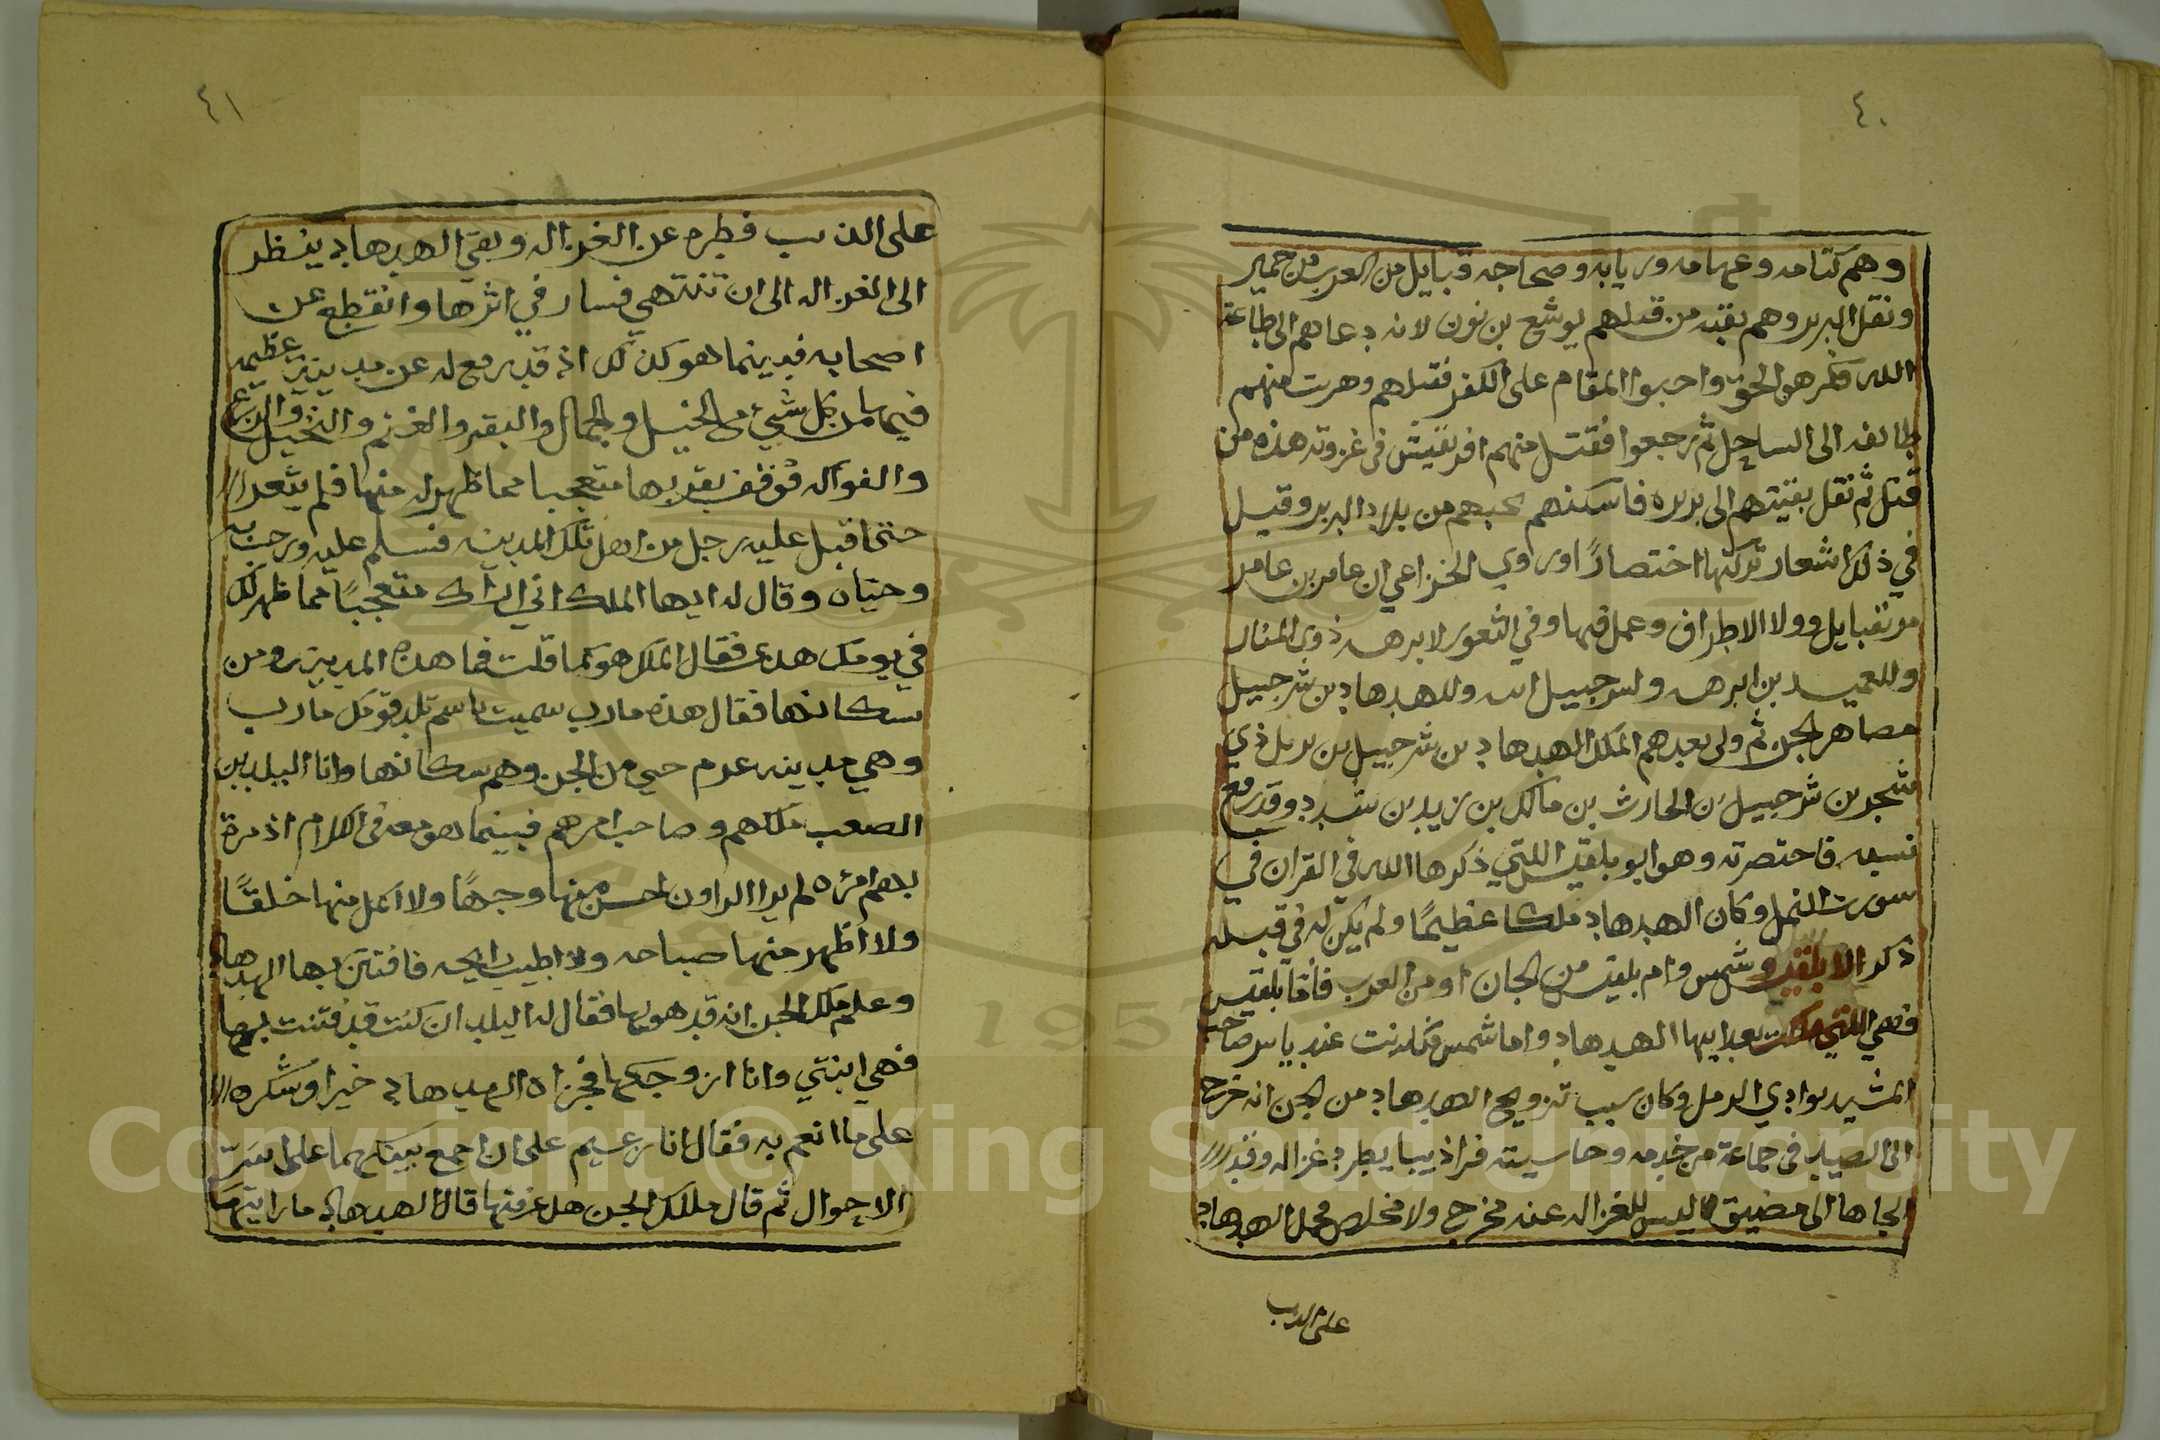 ٤٠
وهم كتامه وعهامه وزيابه وصحاجه قبايل من العرب من حمير
ونقل البربر وهم بقيه من قتلهم يوشع بن نون لانه دعاهم الى طاعة
الله فكرهوا الحق واحبوا المقام على الكفر فقتلهم وهربت منهم
طايفه الى الساحل ثم رجعوا فقتل منهم افريقيش في غزوته هذه من
قتل ثم نقل بقيتهم الى بربره فاسكنهم من بلاد البربر وقيل
في ذلك اشعار تركتها اختصارًا وروي الخزاعي ان عامر بن عامر
وولا الاطراف وعمل فيها وفي الثغور لابرهه ذوي المنار
وللعميد بن ابرهه ولشرحبيل ابنه وللهدهاد بن شرحبيل
مصاهر الجن ثم ولى بعدهم الملك الهدهاد بن شرحبيل بن بريل ذي
سحر بن شرحبيل بن الحارث بن مالك بن زيد بن سدد وقد رفع
نسبه فاختصرته وهو ابو بلقيس اللتي ذكرها الله في القران في
سورت النمل وكان الهدهاد ملكا عظيمًا ولم يكن له في قبله
ذكر الا بلقيس وشمس وام بلقيس من الجان او من العرب فأمّا بلقيس
فهي اللتي ملكت بعد ابيها الهدهاد واما شمس فكانت عند ياسر صاحب
المشيد بوادي الرمل وكان سبب تزويج الهدهاد من الجن انه خرج
الى الصيد في جماعة من خدمه وحاسيته فراذيبا يطرد غزاله وقد
الجاها الى مضيق ليس للغزاله عنه مخرج ولا مخلص فحمل الهدهاد
على الديب
٤١
على الذيب فطرده عن الغزاله وبقي الهدهاد ينظر
الى الغزاله الى ان تنتهي فسار في اثرها وانقطع عن
اصحابه فبينما هو كذلك اذ قد رفع له عن مدينة عظيمه
فيها من كل شيئ من الخيل والجمال والبقر والغنم والنخيل والزرع
والفواكه فوقف بقربها متعجبا مما ظهر له منها فلم يشعر
حتى اقبل عليه رجل من اهل تلك المدينه فسلم عليه ورحب به
وحياه وقال له ايها الملك اني اراك متعجبًا مما ظهر لك
في يومك هذا فقال الملك هو كما قلت فما هذه المدينه ومن
سكانها فقال هذه مارب سميت باسم بلد قومك مارب
وهي مدينه عرم حي من الجن وهم سكانها وانا اليلب بن
الصعب ملكهم وصاحب امرهم فبينما هو معه في الكلام اذ مرة
بهم امرءه لم يرا الراون احسن منها وجهًا ولا اكمل منها خلقًا
ولا اظهر منها صباحه ولا اطيب رايحه فافتتن بها الهدهاد
وعلم ملك الجن انه قد هويها فقال له اليلب ان كنت قد فتنت بها
فهي ابنتي وانا ازوجكها فجزاه الهدهاد خيرا وشكره
على ما انعم به فقال انا زعيم على ان اجمع بينكما على اسرّ
الاحوال ثم قال ملك الجن هل عرفتها قال الهدهاد ما رايتها
Copyright © King Saud University
1957